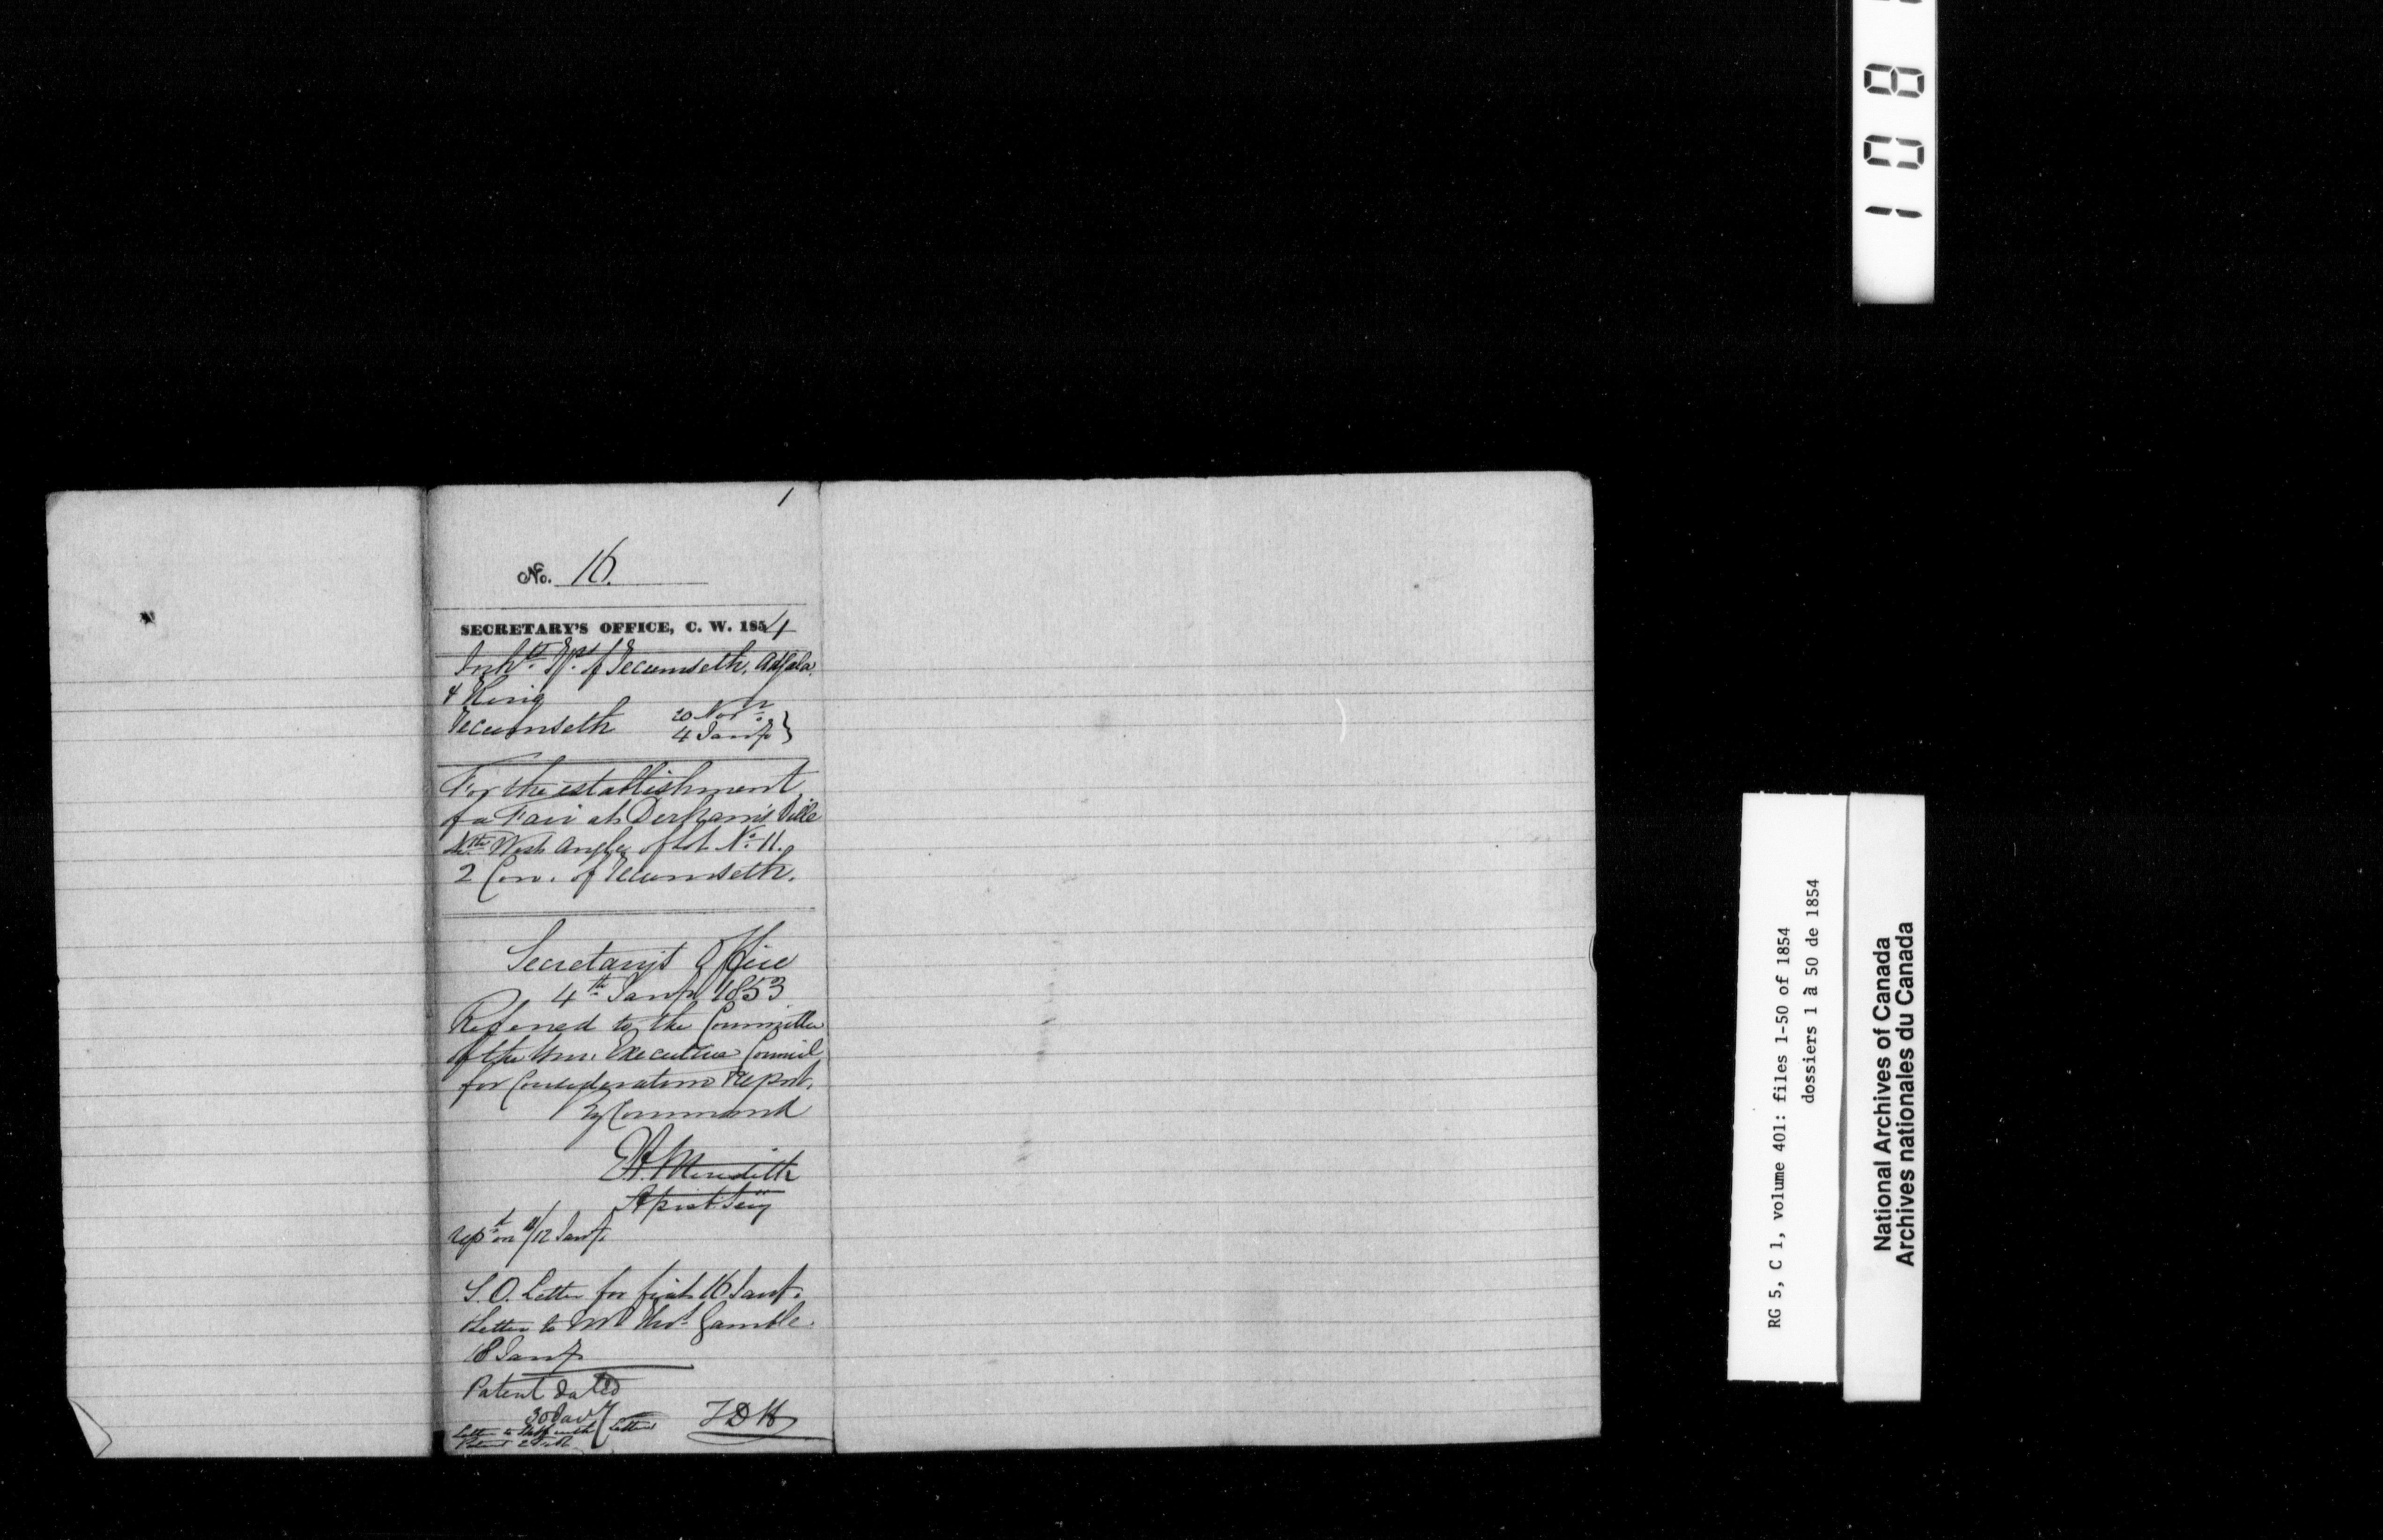 1
No. 16.
SECRETARY'S OFFICE, C. W. 1854
Inhts. Tps. of Tecumseth, Adjala,
& King
Tecumseth 20 Novr.
4 Jany }
For the establishment
of a Fair at Derham's Ville
West Angle of Lot No. 11.
2 Con. of Tecumseth.
Secretary's Office
4th Jany 1853
Referred to the Committee
of the Hon. Executive Council
for Consideration & Report.
By Command
E A Meredith
Assist Secy
Rept. on 11/12 Jany.
S. O. Letter for fiat 16 Jany.
Letter to Mr Thos. Gamble.
18 Jany
Patent dated
30 Jany
Letter to with
Patent 2
108
RG 5, C 1, volume 401: files 1-50 of 1854
dossiers 1 à 50 de 1854
National Archives of Canada
Archives nationales du Canada